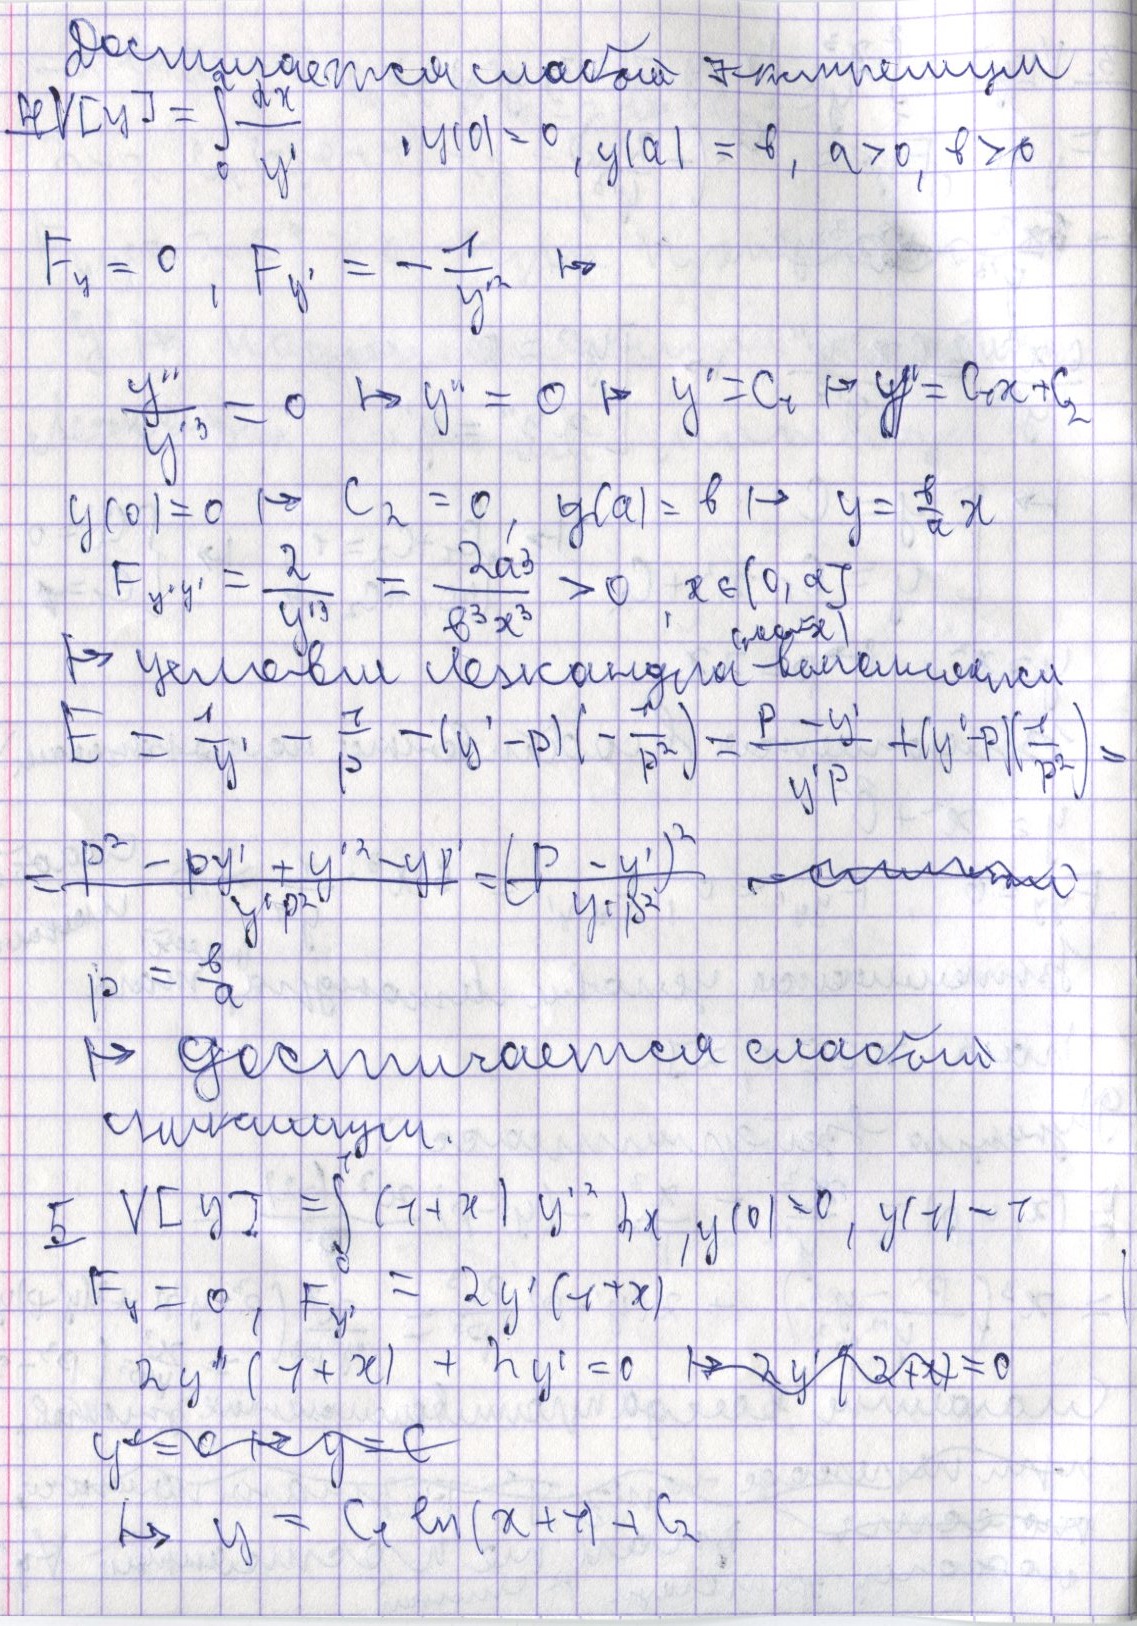 Достигается слабый экстремум
4 V[y] = ∫₀ᵃ dx/y' , y(0) = 0, y(a) = b, a > 0, b > 0
F_y = 0, F_y' = -1/y'² ↦
y''/y'³ = 0 ↦ y'' = 0 ↦ y' = C₁ ↦ y = C₁x + C₂
y(0) = 0 ↦ C₂ = 0, y(a) = b ↦ y = b/a x
F_y'y' = 2/y'³ = 2a³/b³x³ > 0, x ∈ [0, a]
↦ условие Лежандра выполняется
E = 1/y' - 1/p - (y' - p)(-1/p²) = p - y'/y'p + (y' - p)(1/p²) =
= p² - py' + y'² - yp'/y'p² = (p - y')²/y'p²
p = b/a
↦ достигается слабый
минимум.
5 V[y] = ∫₀¹ (1+x) y'² dx, y(0) = 0, y(1) = 1
F_y = 0, F_y' = 2y'(1+x)
2y''(1+x) + 2y' = 0 ↦ 2y'(2+x) = 0
y' = 0 ↦ y = C
↦ y = C₁ ln(x+1) + C₂